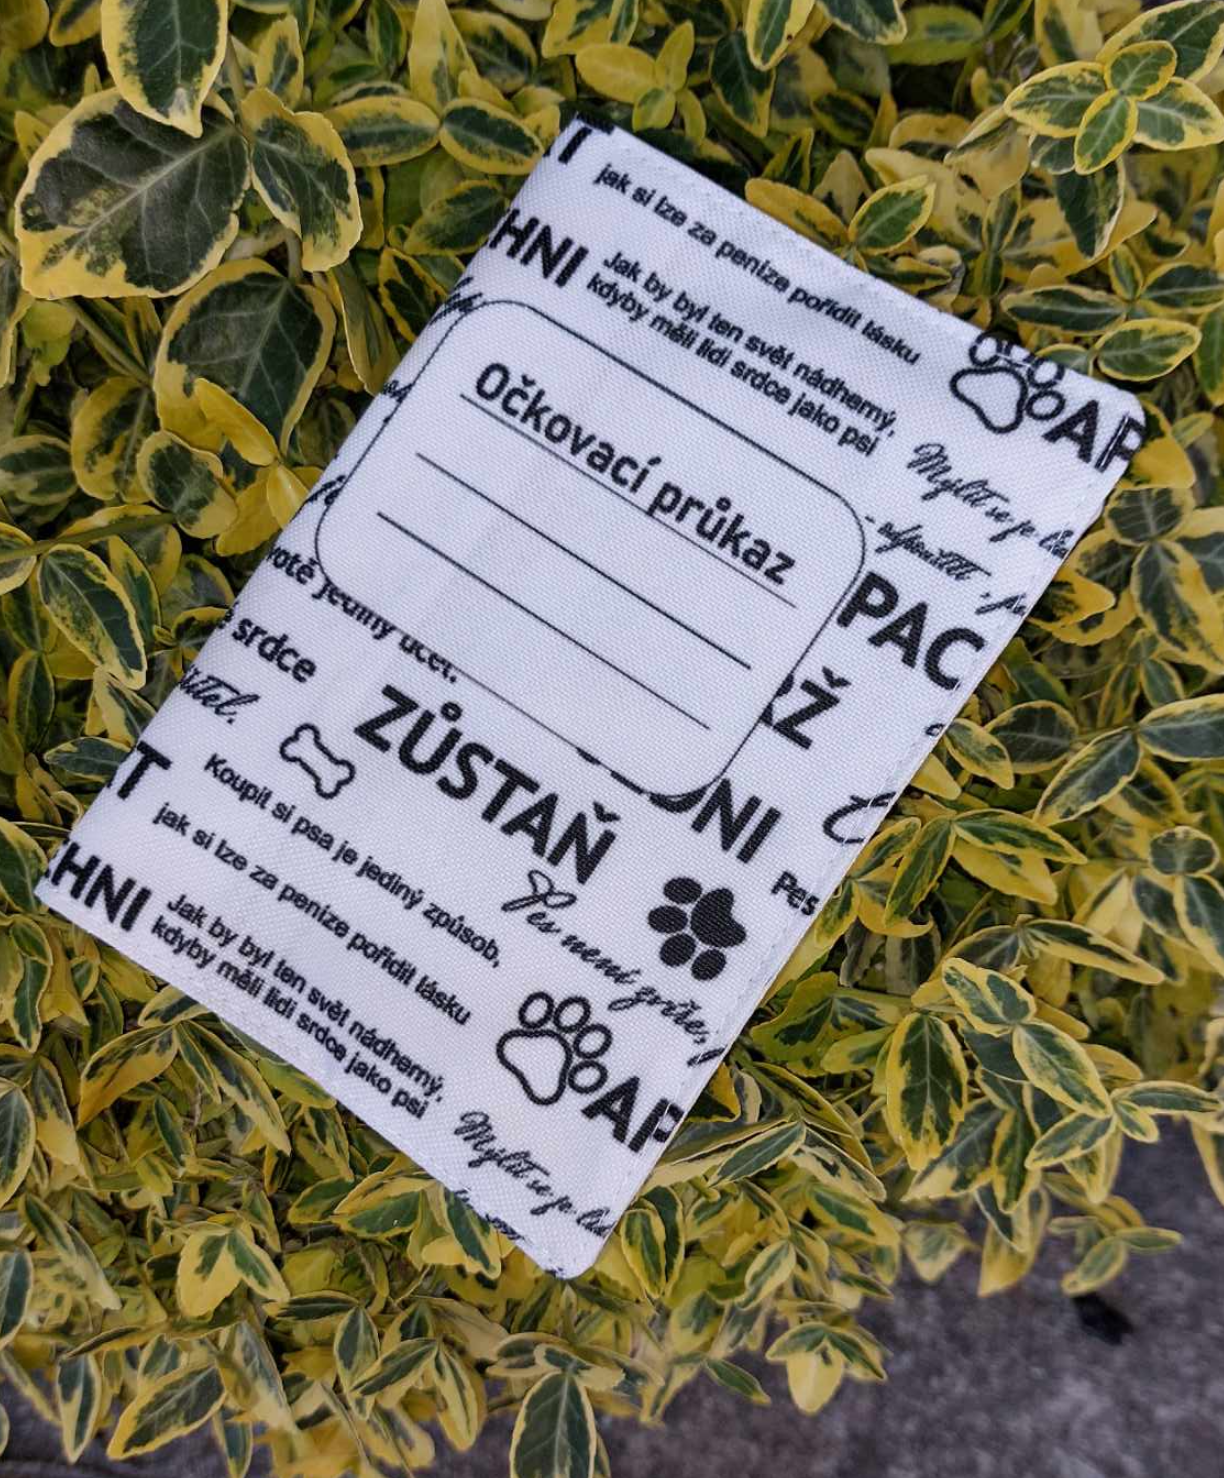 jak si lze za peníze pořídit lásku
HNI
Jak by byl ten svět nádherný,
kdyby měli lidi srdce jako psi
AP
Mýlit se je
Očkovací průkaz
PAC
votě jediný účet.
srdce
ZŮSTAŇ
Koupit si psa je jediný způsob,
jak si lze za peníze pořídit lásku
Pes
Pes není zvíře,
HNI
Jak by byl ten svět nádherný,
kdyby měli lidi srdce jako psi
AP
Mýlit se je